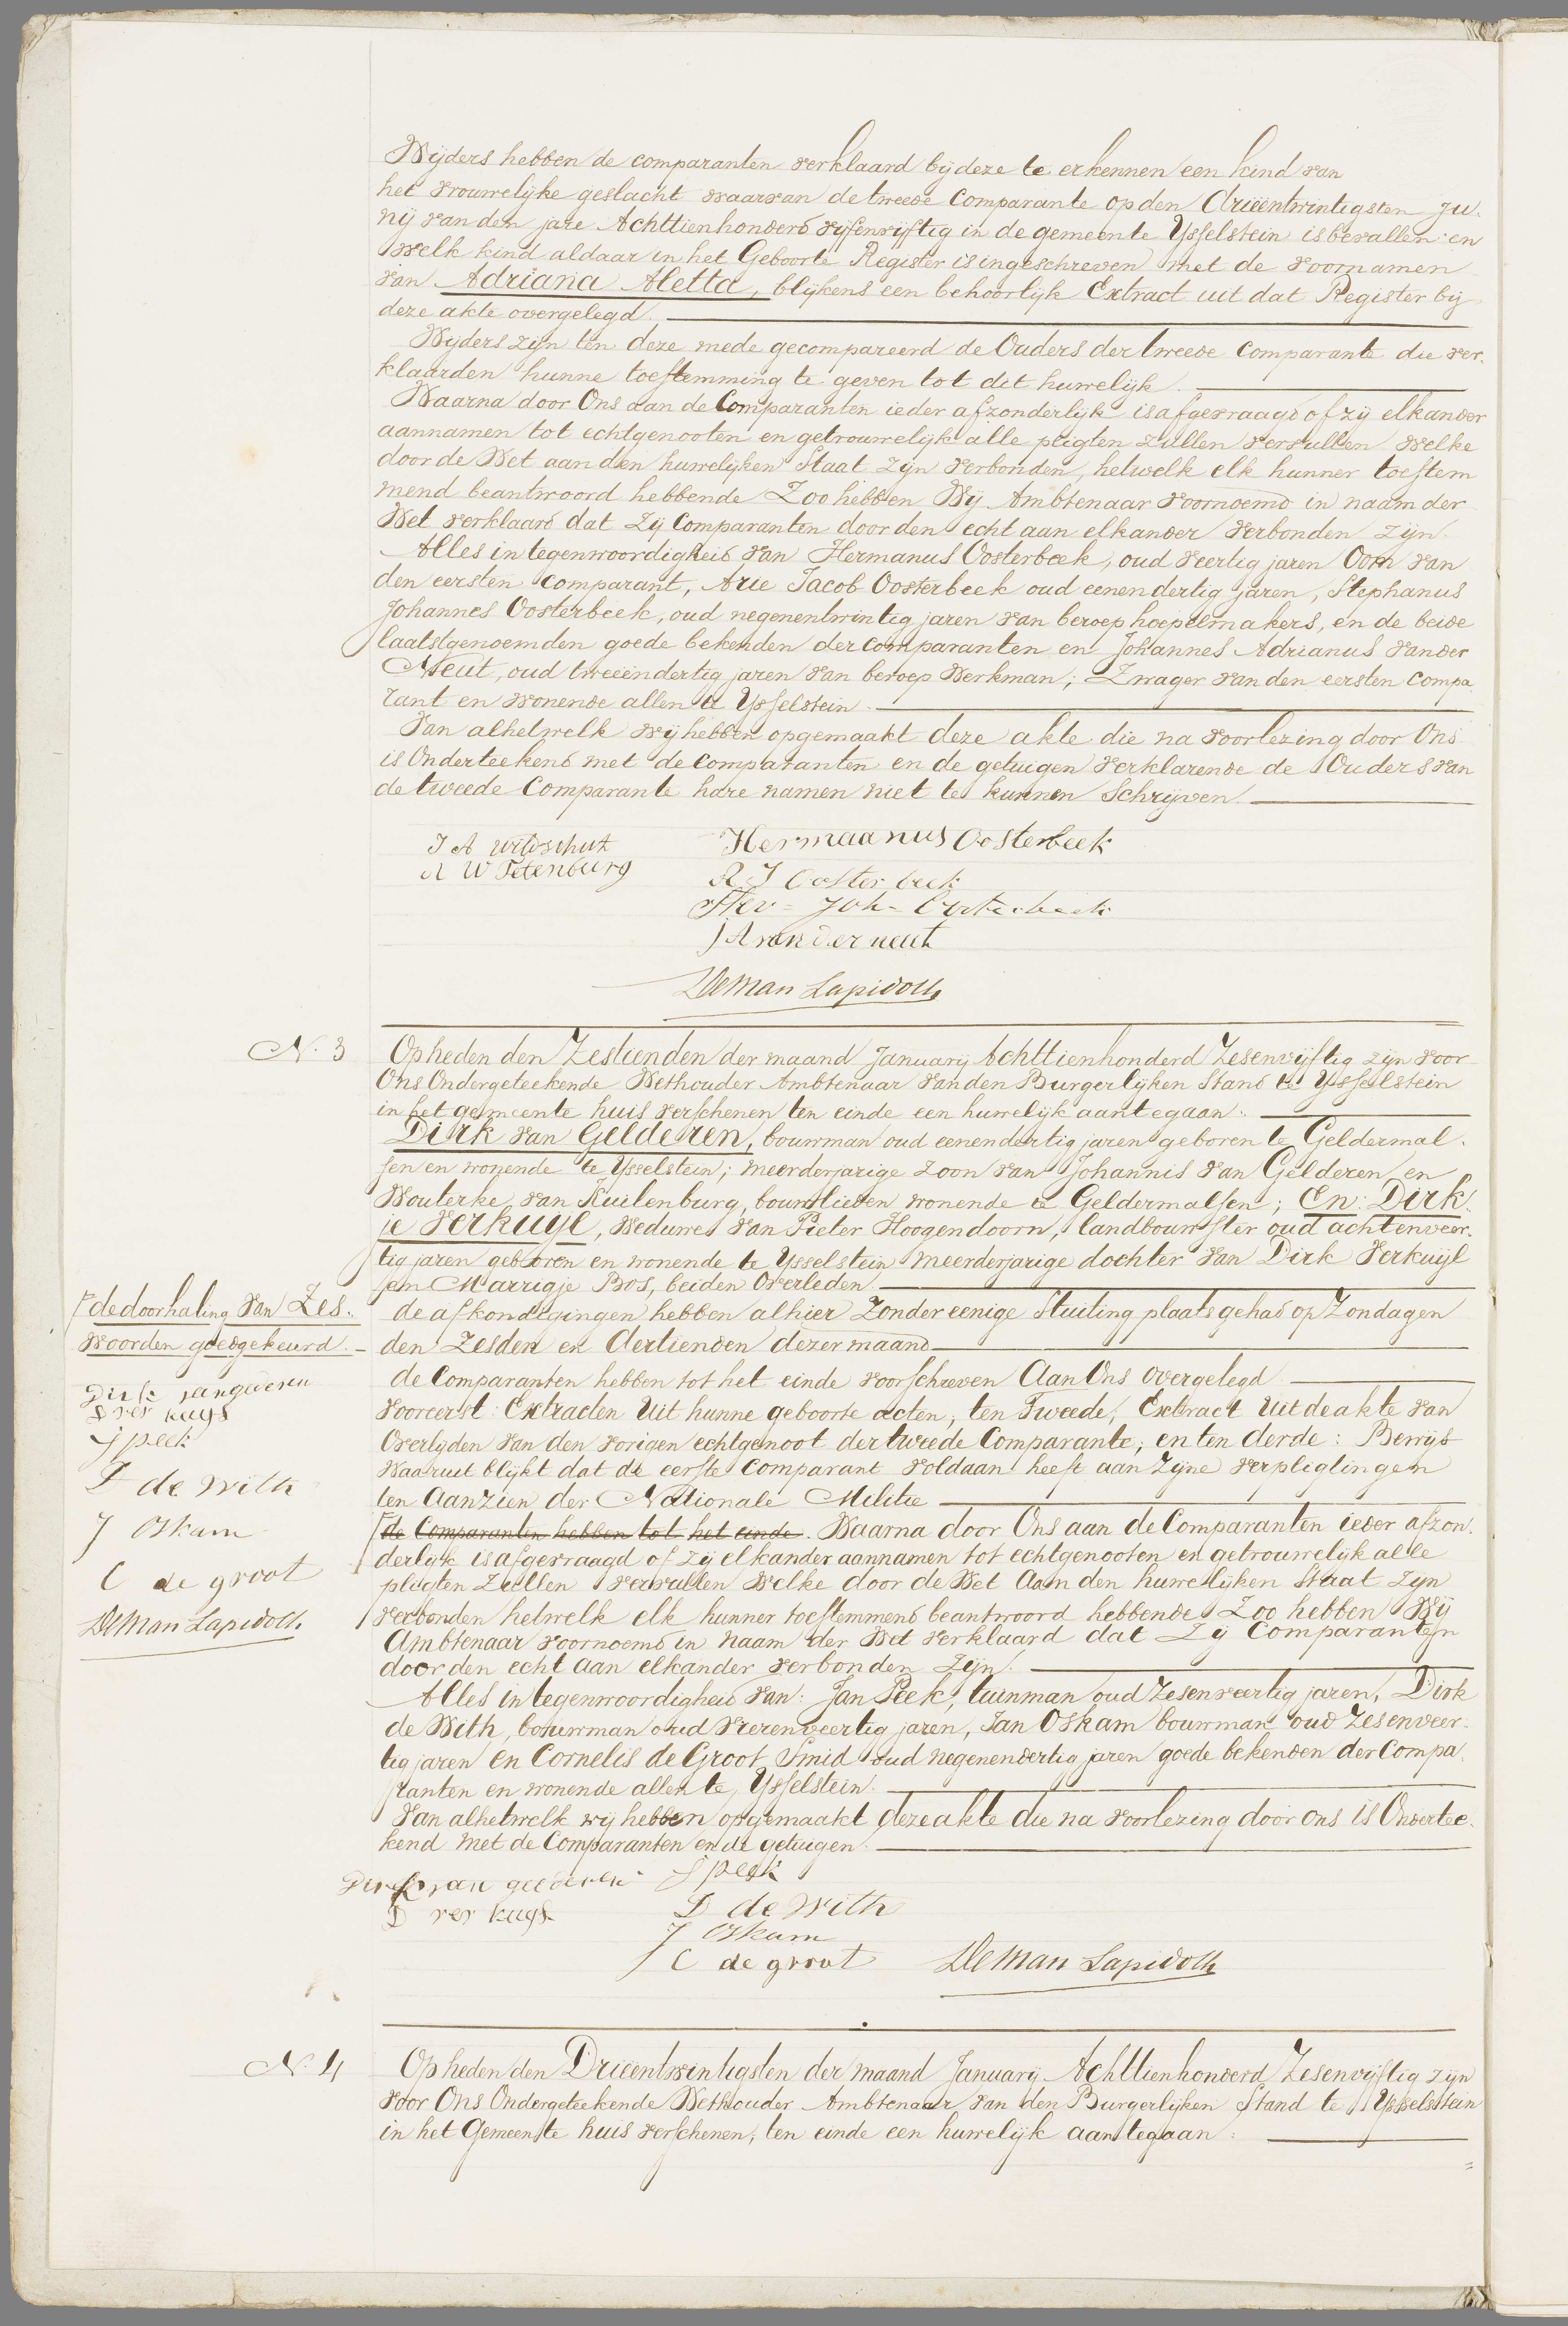 Wijders hebben de comparanten verklaard bij deze te erkennen een kind van
het vrouwelijke geslacht waarvan de tweede Comparante op den drieëntwintigsten Ju-
nij van den jare Achttienhonderd vijfenvijftig in de gemeente Ysselstein is bevallen en
welk kind aldaar in het Geboorte Register is ingeschreven met de voornamen
van Adriana Aletta, blijkens een behoorlijk Extract uit dat Register bij
deze akte overgelegd.
Wijders zijn ten deze mede gecompareerd de Ouders der tweede Comparante die ver-
klaarden hunne toestemming te geven tot dit huwelijk.
Waarna door Ons aan de Comparanten ieder afzonderlijk is afgevraagd of zij elkander
aannamen tot echtgenooten en getrouwelijk alle pligten zullen vervullen welke
door de Wet aan den huwelijken Staat zijn verbonden, hetwelk elk hunner toestem
mend beantwoord hebbende Zoo hebben Wij Ambtenaar voornoemd in naam der
Wet verklaard dat Zij Comparanten door den echt aan elkander verbonden zijn.
Alles in tegenwoordigheid van Hermanus Oosterbeek, oud veertig jaren Oom van
den eersten Comparant, Arie Jacob Oosterbeek oud eenendertig jaren, Stephanus
Johannes Oosterbeek, oud negenentwintig jaren van beroep hoepelmakers, en de beide
laatstgenoemden goede bekenden der comparanten en Johannes Adrianus van der
Neut, oud tweeëndertig jaren van beroep Werkman; Zwager van den eersten Compa
rant en wonende allen te Ysselstein.
Van alhetwelk wij hebben opgemaakt deze akte die na voorlezing door Ons
is Onderteekend met de Comparanten en de getuigen verklarende de Ouders van
de tweede Comparante hare namen niet te kunnen Schrijven.
J A wildschut
A W Petenburg
Hermaanus Oosterbeek
A J Oosterbeek
Stev = Joh = Oosterbeek
J A van der neut
DeMan Lapidoth
N. 3
Op heden den Zestienden der maand Januarij Achttienhonderd Zesenvijftig zijn voor
Ons Ondergeteekende Wethouder Ambtenaar van den Burgerlijken Stand te Ysselstein
in het gemeente huis verschenen ten einde een huwelijk aan te gaan:
Dirk van Gelderen, bouwman oud eenendertig jaren geboren te Geldermal-
sen en wonende te Ysselstein; meerderjarige zoon van Johannis van Gelderen en
Wouterke van Kuilenburg, bouwlieden wonende te Geldermalsen; En: Dirk-
je Verkuyl, Weduwe van Pieter Hoogendoorn, landbouwster oud achtenveer-
tig jaren geboren en wonende te Ysselstein meerderjarige dochter van Dirk Verkuijl
en Marrigje Bos, beiden Overleden
de afkondigingen hebben alhier Zonder eenige Stuiting plaats gehad op Zondagen
den Zesden en dertienden dezer maand
de Comparanten hebben tot het einde voorschreven Aan Ons overgelegd
Vooreerst: Extracten Uit hunne geboorte acten, ten Tweede, Extract Uit de akte van
Overlijden van den vorigen echtgenoot der tweede Comparante, en ten derde: Bewijs
Waaruit blijkt dat de eerste Comparant voldaan heeft aan Zijne verpligtingen
ten Aanzien der Nationale Militie
de Comparanten hebben tot het einde. Waarna door Ons aan de Comparanten ieder afzon-
derlijk is afgevraagd of zij elkander aannamen tot echtgenooten en getrouwelijk alle
pligten Zullen vervullen Welke door de Wet Aan den huwelijken Staat zijn
verbonden hetwelk elk hunner toestemmend beantwoord hebbende Zoo hebben Wij
Ambtenaar voornoemd in naam der Wet verklaard dat Zij Comparanten
door den echt aan elkander verbonden zijn.
Alles in tegenwoordigheid van: Jan Peek, tuinman oud Zesenveertig jaren, Dirk
de With, bouwman oud vierenveertig jaren, Jan Oskam bouwman oud Zesenveer-
tig jaren en Cornelis de Groot, Smid oud negenendertig jaren goede bekenden der Compa-
ranten en wonende allen te Ysselstein.
Van alhetwelk wij hebben opgemaakt deze akte die na voorlezing door ons is Ondertee-
kend met de Comparanten en de getuigen.
Dirk van gelderen
D ver kuyl
J peek
D de With
J Oskam
C de groot
DeMan Lapidoth
de doorhaling van Zes
woorden goedgekeurd.
Dirk van gelderen
D ver kuyl
J peek
D de With
J Oskam
C de groot
DeMan Lapidoth
N. 4
Op heden den Drieentwintigsten der maand Januarij Achttienhonderd Zesenvijftig zijn
voor Ons Ondergeteekende Wethouder Ambtenaar van den Burgerlijken Stand te Ysselstein
in het Gemeente huis verschenen, ten einde een huwelijk aan te gaan: